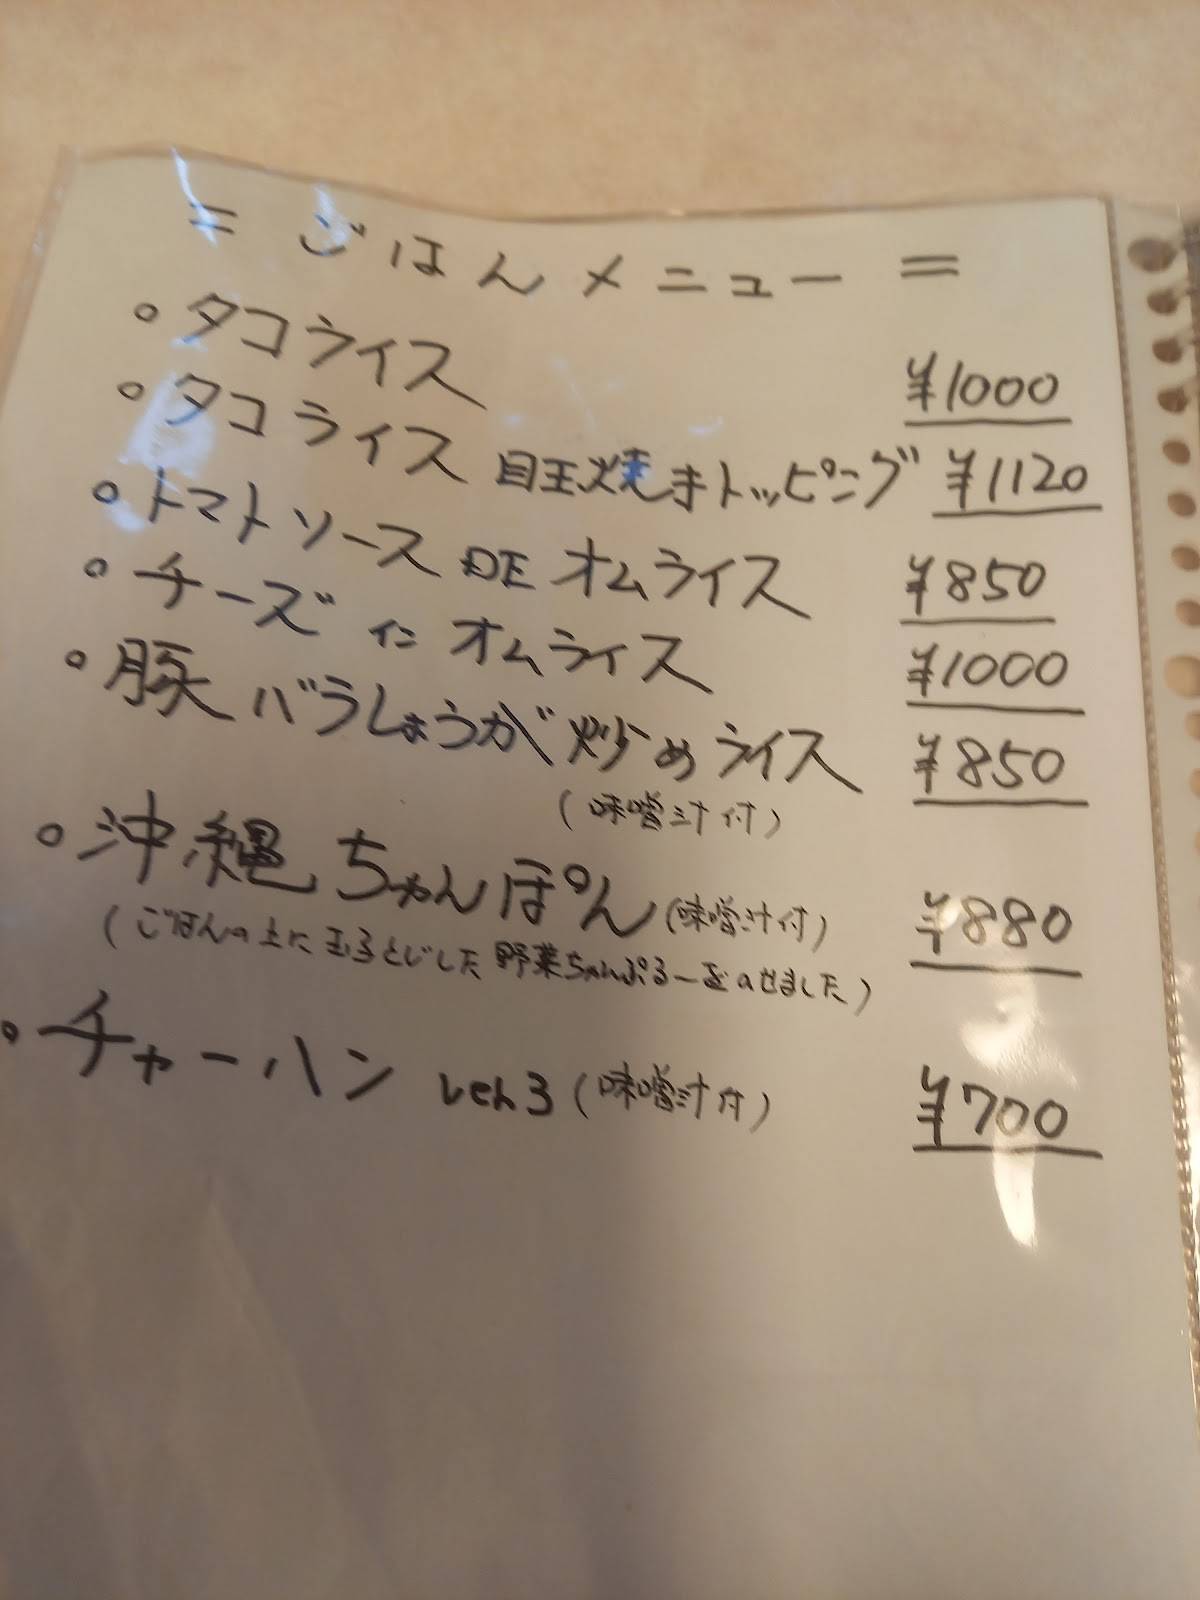 = ごはんメニュー =
。タコライス ¥1000
。タコライス 目玉焼きトッピング ¥1120
。トマトソース DE オムライス ¥850
。チーズ in オムライス ¥1000
。豚バラしょうが炒めライス ¥850
(味噌汁付)
。沖縄ちゃんぽん (味噌汁付) ¥880
(ごはんの上に玉子とじした野菜ちゃんぷるーをのせました)
。チャーハン ver 3 (味噌汁付) ¥700